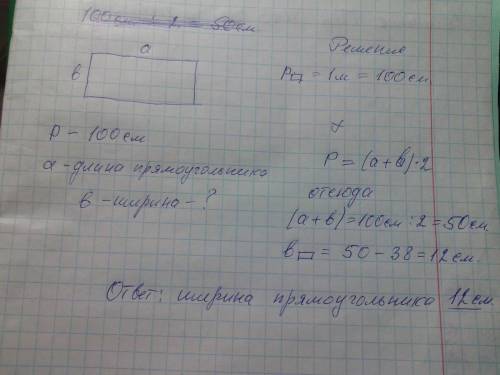 100см : 2 = 50см
a
в
P - 100см
a - длина прямоугольника
в - ширина - ?
Решение
P▭ = 1м = 100см.
P = (a+в)·2
отсюда
(a+в) = 100см : 2 = 50см
в▭ = 50 - 38 = 12см.
Ответ: ширина прямоугольника 12см